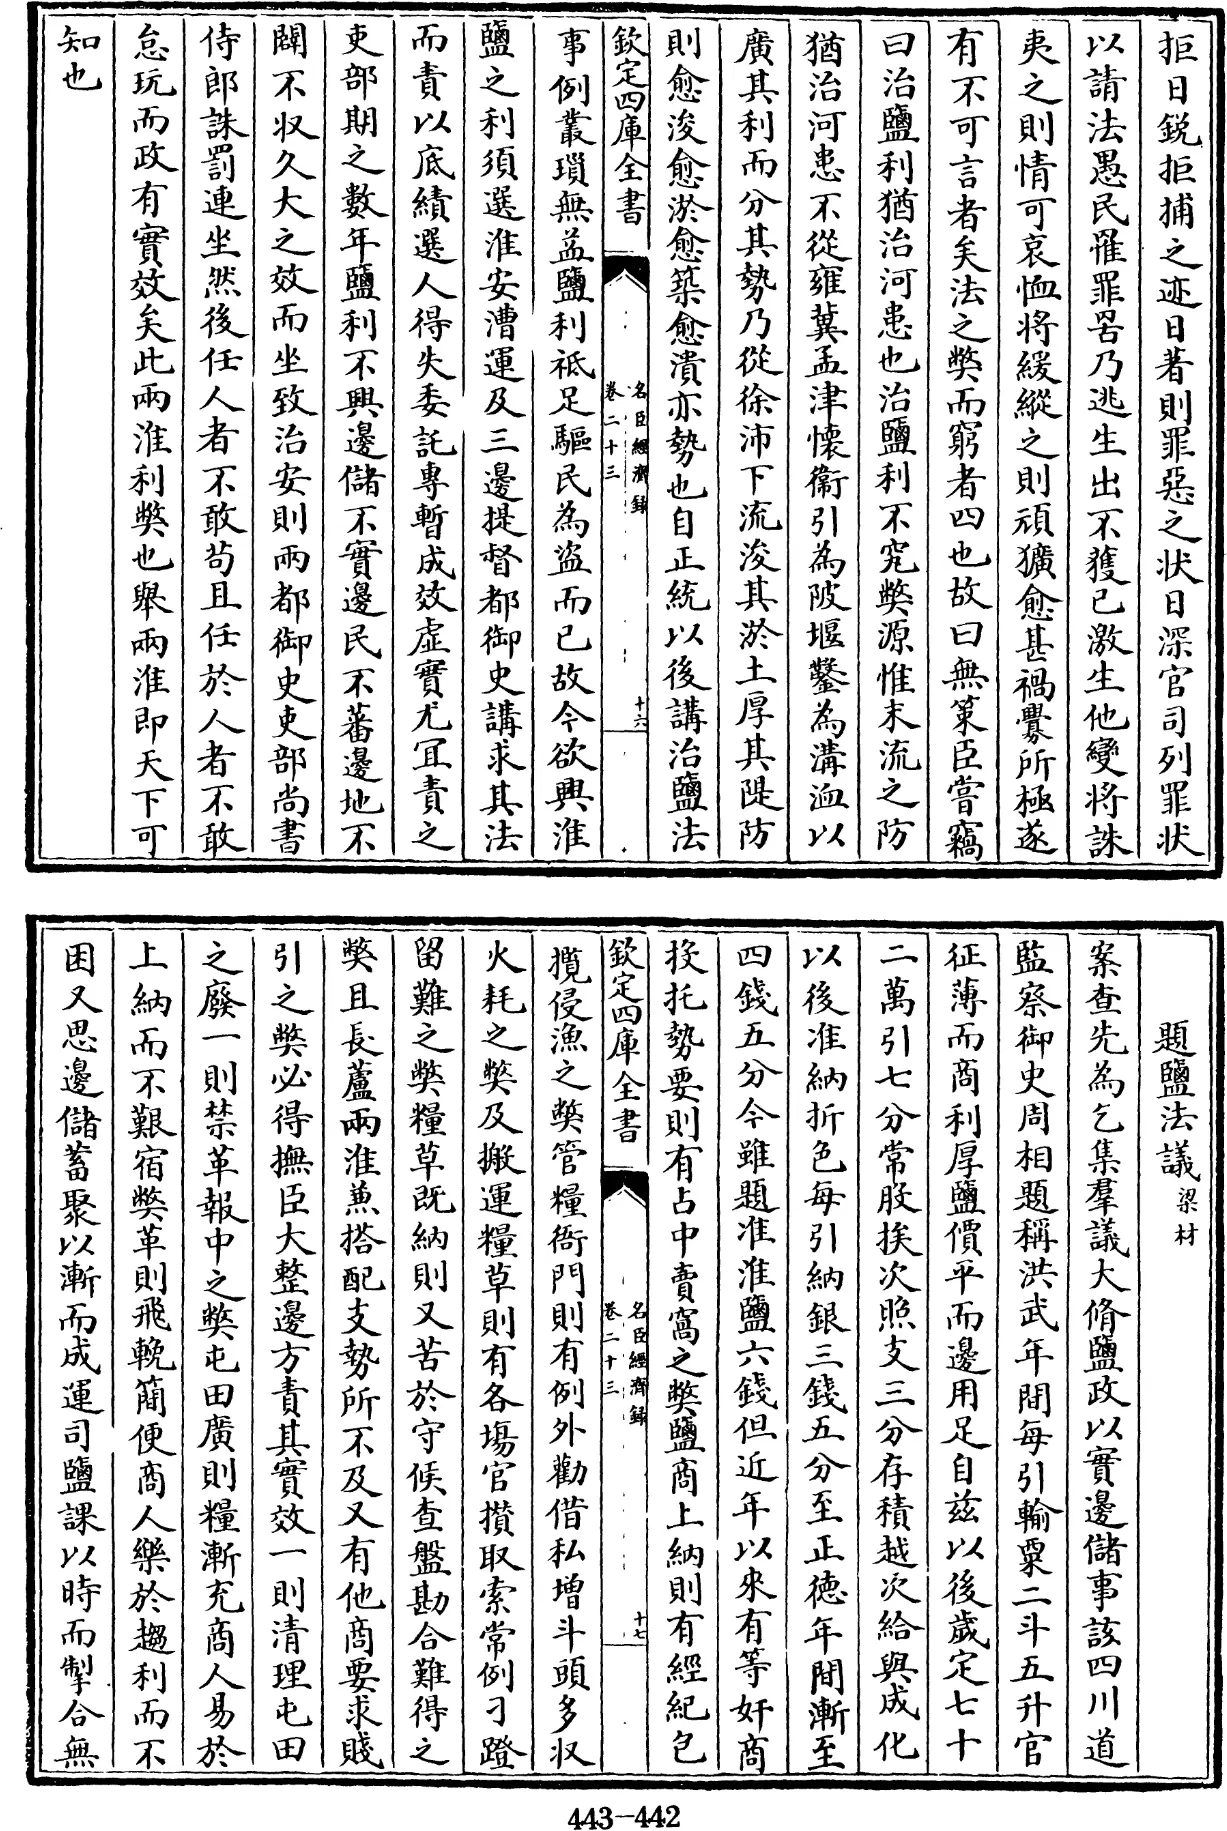 拒日鋭拒捕之迹日著則罪惡之状日深官司列罪状
以請法愚民罹罪罟乃逃生出不獲已激生他變将誅
夷之則情可哀恤将緩縱之則頑獷愈甚禍釁所極遂
有不可言者矣法之弊而窮者四也故曰無策臣嘗竊
曰治鹽利猶治河患也治鹽利不究弊源惟末流之防
猶治河患不從雍冀孟津懐衞引為陂堰鑿為溝洫以
廣其利而分其勢乃從徐沛下流浚其淤土厚其隄防
則愈浚愈淤愈築愈潰亦勢也自正統以後講治鹽法
欽定四庫全書
名臣經濟録
卷二十三
十六
事例叢瑣無益鹽利祇足驅民為盜而已故今欲興淮
鹽之利須選淮安漕運及三邊提督都御史講求其法
而責以底績選人得失委託專暫成效虛實尤宜責之
吏部期之數年鹽利不興邊儲不實邊民不蕃邊地不
闢不収久大之效而坐致治安則兩都御史吏部尚書
侍郎誅罰連坐然後任人者不敢苟且任於人者不敢
怠玩而政有實效矣此兩淮利弊也舉兩淮即天下可
知也
題鹽法議 梁材
案查先為乞集羣議大脩鹽政以實邊儲事該四川道
監察御史周相題稱洪武年間每引輸粟二斗五升官
征薄而商利厚鹽價平而邊用足自兹以後歲定七十
二萬引七分常股挨次照支三分存積越次給與成化
以後准納折色每引納銀三錢五分至正德年間漸至
四錢五分今雖題准淮鹽六錢但近年以來有等奸商
投托勢要則有占中賣窩之弊鹽商上納則有經紀包
欽定四庫全書
名臣經濟録
卷二十三
十七
攬侵漁之弊管糧衙門則有例外勸借私增斗頭多収
火耗之弊及搬運糧草則有各場官攢取索常例刁蹬
留難之弊糧草既納則又苦於守候查盤勘合難得之
弊且長蘆兩淮兼搭配支勢所不及又有他商要求賤
引之弊必得撫臣大整邊方責其實效一則清理屯田
之廢一則禁革報中之弊屯田廣則糧漸充商人易於
上納而不艱宿弊革則飛輓簡便商人樂於趨利而不
困又思邊儲蓄聚以漸而成運司鹽課以時而掣合無
443-442